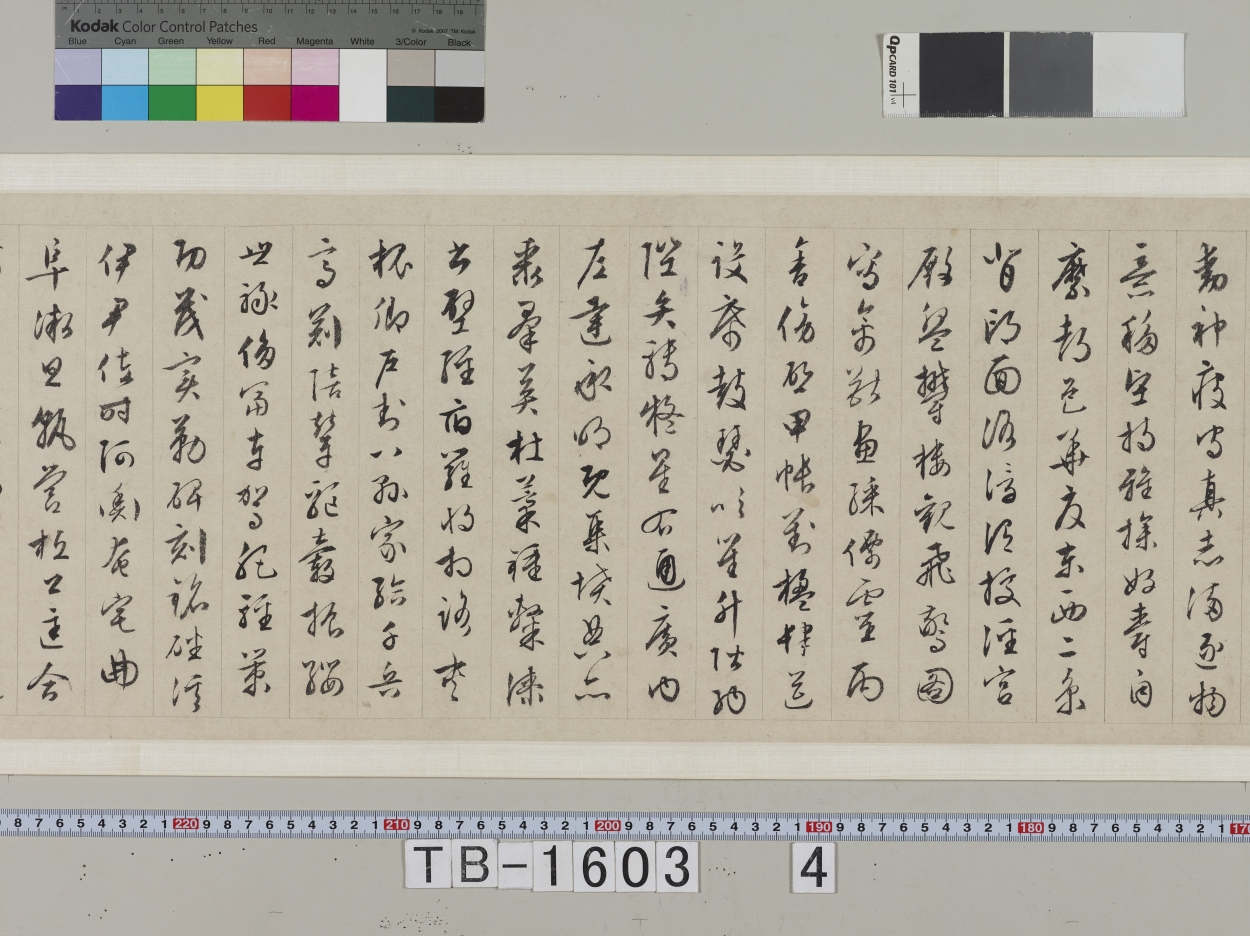 Kodak Color Control Patches
© Kodak, 2007 TM: Kodak
Blue Cyan Green Yellow Red Magenta White 3/Color Black
QPCARD 101 v4
動神疲守真志滿逐物
意移堅持雅操好爵自
縻都邑華夏東西二京
背邙面洛浮渭據涇宮
殿盤鬱樓觀飛驚圖
寫禽獸畫綵僊靈丙
舍傍啟甲帳對楹肆筵
設席鼓瑟吹笙升階納
陛弁轉疑星右通廣內
左達承明既集墳典亦
聚群英杜稾鍾隸漆
書壁經府羅將相路俠
槐卿戶封八縣家給千兵
高冠陪輦驅轂振纓
世祿侈富車駕肥輕策
功茂實勒碑刻銘磻溪
伊尹佐時阿衡奄宅曲
阜微旦孰營桓公匡合
8 7 6 5 4 3 2 1 220 9 8 7 6 5 4 3 2 1 210 9 8 7 6 5 4 3 2 1 200 9 8 7 6 5 4 3 2 1 190 9 8 7 6 5 4 3 2 1 180 9 8 7 6 5 4 3 2 1
TB-1603 4